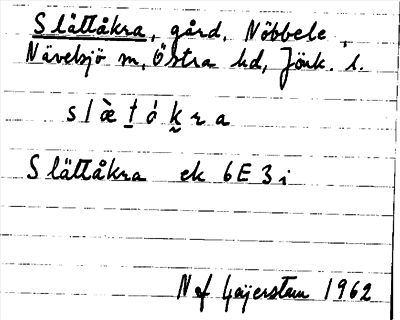 Slättåkra, gård, Nöbbele,
Nävelsjö sn, Östra hd, Jönk. l.
slæ̀t̠ókra
Slättåkra ek 6E3i
N af Geijerstam 1962